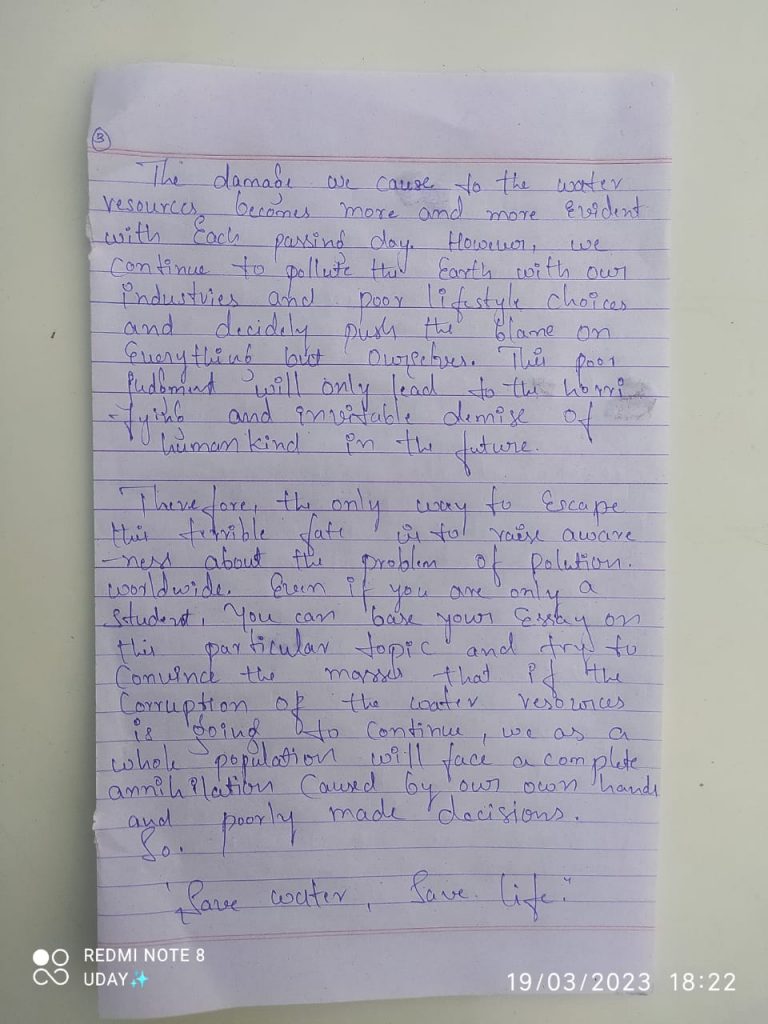 3
The damage we cause to the water
resources becomes more and more Evident
with Each passing day. However, we
Continue to pollute the Earth with our
industries and poor lifestyle choices
and decidely push the blame on
Everything but Ourselves. This poor
Judbment will only lead to the horri
-fying and invitable demise of
humankind in the future.
Therefore, the only way to Escape
this terrible fate is to raise aware
-ness about the problem of polution.
worldwide. Even if you are only a
Student, You can base your Essay on
this particular topic and try to
Convince the masses that if the
Corruption of the water resources
is going to Continue, we as a
whole population will face a complete
annihilation Caused by our own hands
and poorly made decisions.
So.
"Save water, Save life."
REDMI NOTE 8
UDAY✨
19/03/2023 18:22